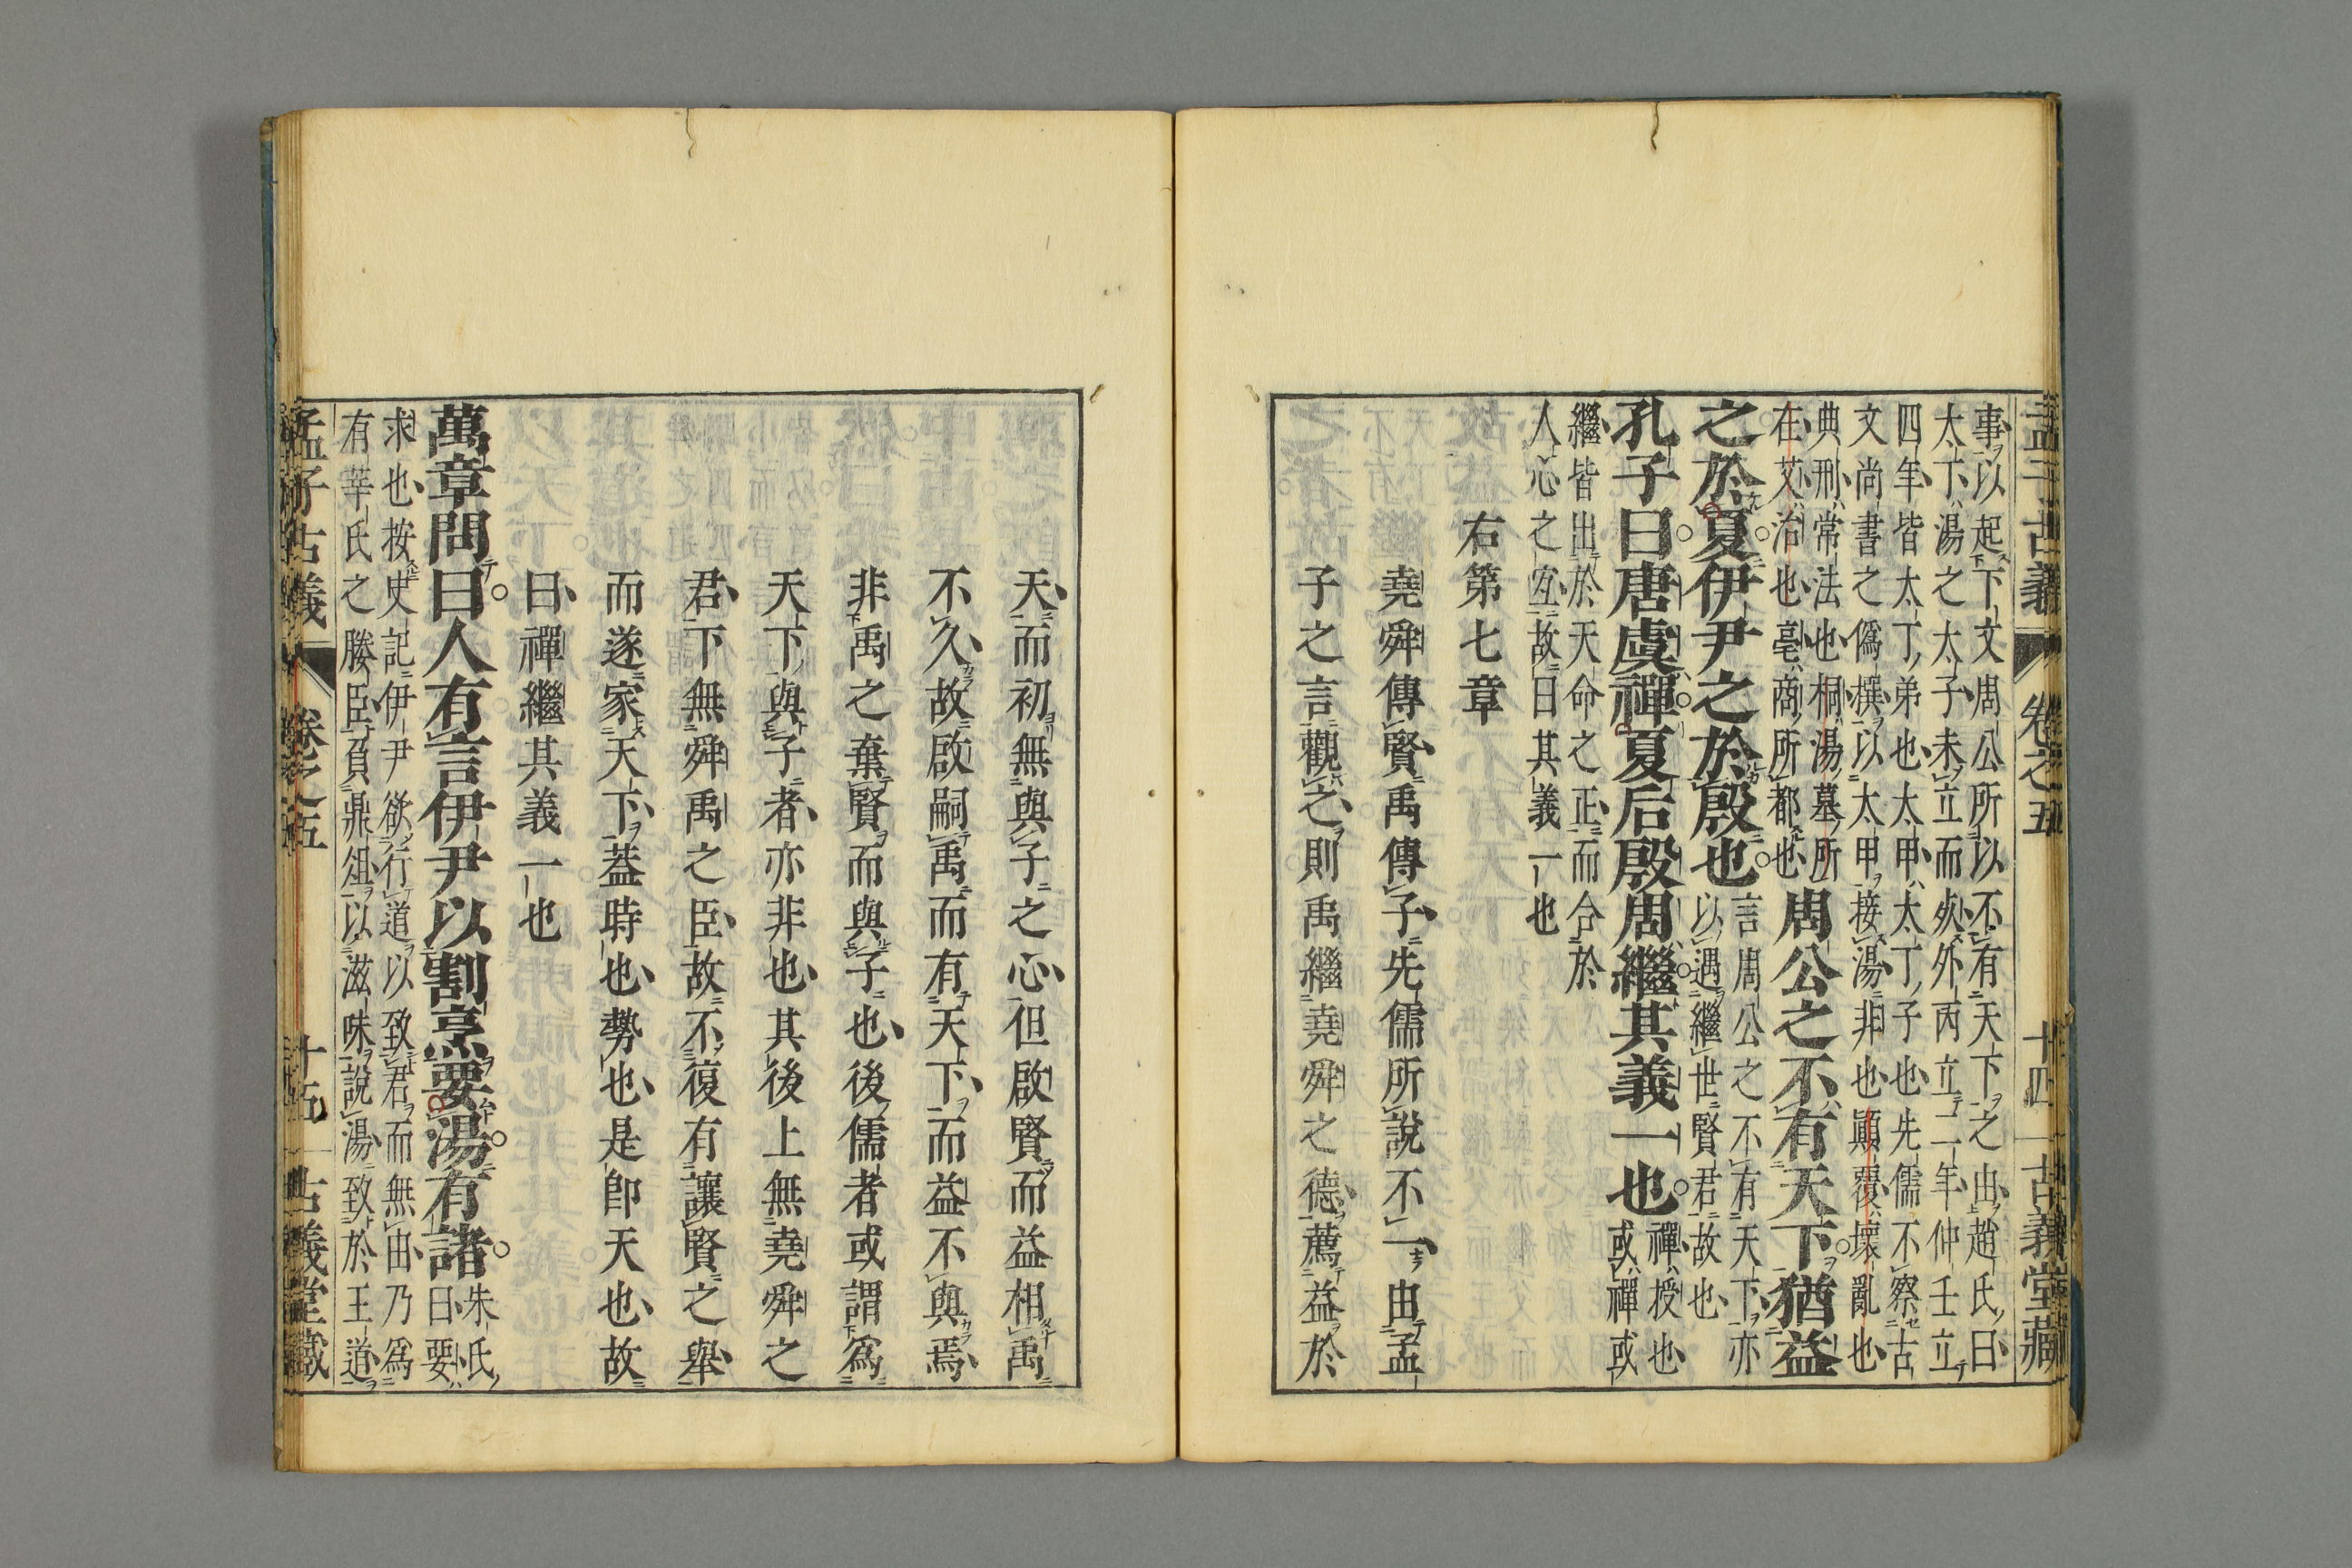 孟子古義 卷之五 十四 古義堂藏
事以起下文周公所以不有天下之由趙氏曰
太丁湯之太子未立而殀外丙立二年仲壬立
四年皆太丁弟也太甲太丁子也先儒不察古
文尚書之僞撰以太甲接湯非也顚覆壞亂也
典刑常法也桐湯墓所
在艾治也亳商所都也
周公之不有天下猶益
之於夏伊尹之於殷也
言周公之不有天下亦
以遇繼世賢君故也
孔子曰唐虞禪夏后殷周繼其義一也
禪授也
或禪或
繼皆出於天命之正而合於
人心之宜故曰其義一也
右第七章
堯舜傳賢禹傳子先儒所說不一由孟
子之言觀之則禹繼堯舜之德薦益於
天而初無與子之心但啟賢而益相禹
不久故啟嗣禹而有天下而益不與焉
非禹之棄賢而與子也後儒者或謂爲
天下與子者亦非也其後上無堯舜之
君下無舜禹之臣故不復有讓賢之舉
而遂家天下葢時也勢也是卽天也故
曰禪繼其義一也
萬章問曰人有言伊尹以割烹要湯有諸
朱氏
曰要
求也按史記伊尹欲行道以致君而無由乃爲
有莘氏之媵臣負鼎俎以滋味說湯致於王道
孟子古義 卷之五 十五 古義堂藏